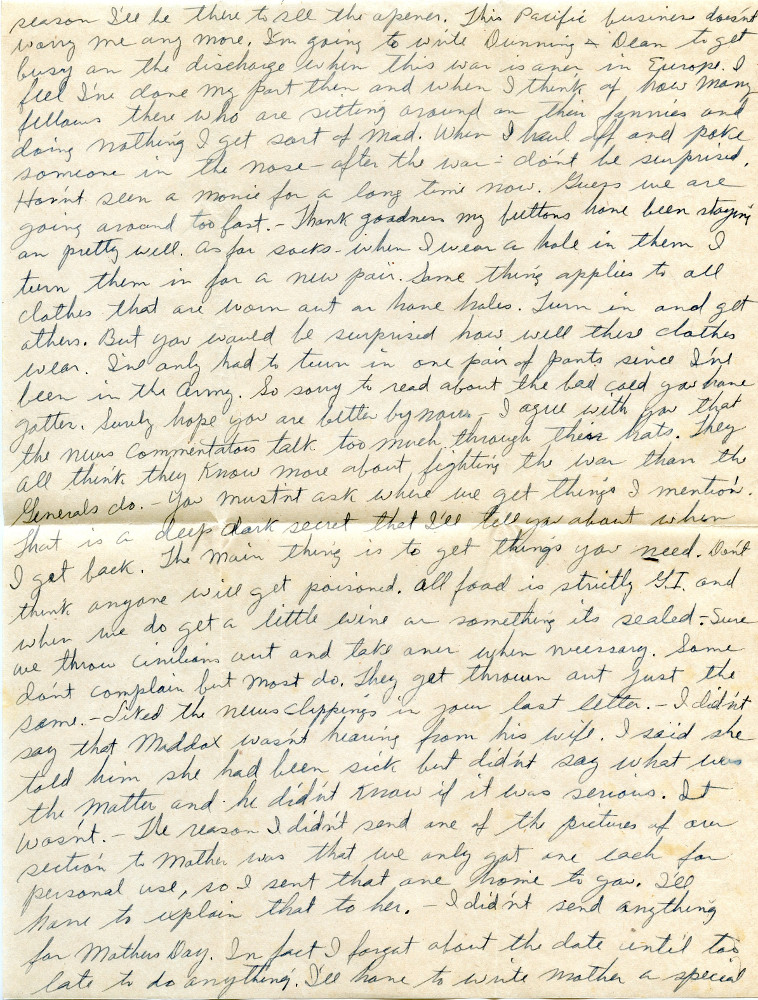 season I'll be there to see the opener. This Pacific business doesn't
worry me any more. I'm going to write Dunning & Dean to get
busy on the discharge when this war is over in Europe. I
feel I've done my part then and when I think of how many
fellows there who are sitting around on their fannies and
doing nothing I get sort of mad. When I haul off and poke
someone in the nose - after the war - don't be surprised.
Hav'nt seen a movie for a long time now. Guess we are
going around too fast. - Thank goodness my buttons have been staying
on pretty well. As for socks - when I wear a hole in them I
turn them in for a new pair. Same thing applies to all
clothes that are worn out or have holes. Turn in and get
others. But you would be surprised how well these clothes
wear. I've only had to turn in one pair of pants since I've
been in the Army. So sorry to read about the bad cold you have
gotten. Surely hope you are better by now - I agree with you that
the news commentators talk too much through their hats. They
all think they know more about fighting the war than the
Generals do. - You must'nt ask where we get things I mention.
That is a deep dark secret that I'll tell you about when
I get back. The main thing is to get things you need. Don't
think anyone will get poisoned. All food is strictly G.I. and
when we do get a little wine or something its sealed - Sure
we throw civilians out and take over when necessary. Some
don't complain but most do. They get thrown out just the
same. - Liked the news clippings in your last letter. - I did'nt
say that Maddox was'nt hearing from his wife. I said she
told him she had been sick but did'nt say what was
the matter and he did'nt know if it was serious. It
was'nt. - The reason I did'nt send one of the pictures of our
section to Mother was that we only got one each for
personal use, so I sent that one home to you. I'll
have to explain that to her. - I did'nt send anything
for Mothers Day. In fact I forgot about the date until too
late to do anything. I'll have to write mother a special